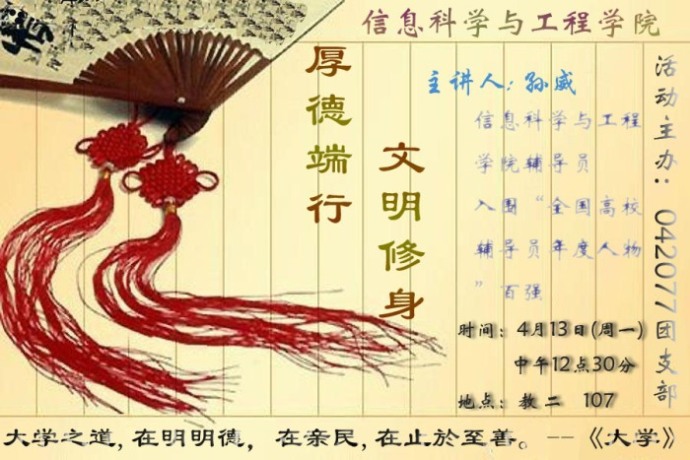 信息科学与工程学院
厚德端行
文明修身
主讲人:孙威
信息科学与工程
学院辅导员
入围“全国高校
辅导员年度人物
”百强
时间:4月13日(周一)
中午12点30分
地点:教二 107
活动主办:042077团支部
大学之道,在明明德,在亲民,在止於至善。--《大学》